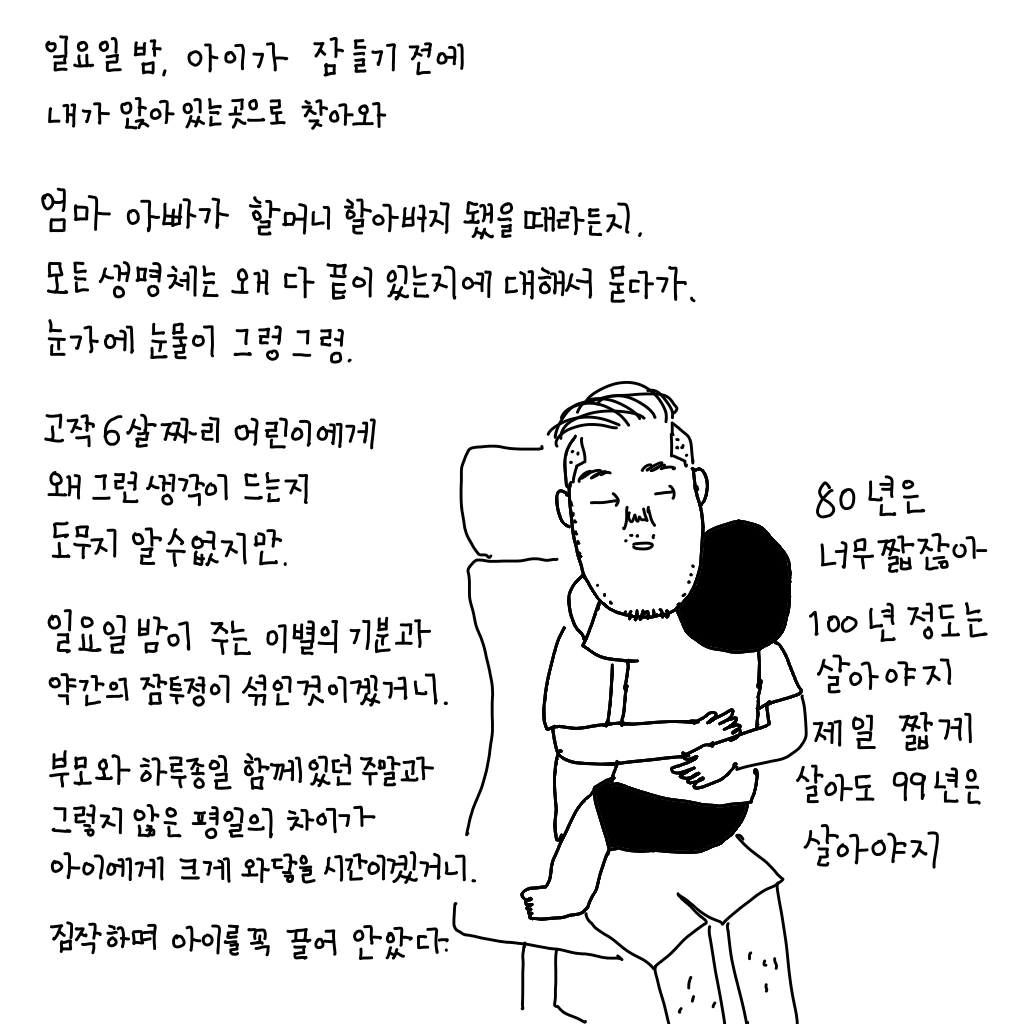 일요일 밤, 아이가 잠들기 전에
내가 앉아 있는곳으로 찾아와
엄마 아빠가 할머니 할아버지 됐을 때라든지.
모든 생명체는 왜 다 끝이 있는지에 대해서 묻다가.
눈가에 눈물이 그렁 그렁.
고작 6살 짜리 어린이에게
왜 그런 생각이 드는지
도무지 알 수 없지만.
일요일 밤이 주는 이별의 기분과
약간의 잠투정이 섞인것이겠거니.
부모와 하루종일 함께 있던 주말과
그렇지 않은 평일의 차이가
아이에게 크게 와닿을 시간이겠거니.
짐작하며 아이를 꼭 끌어 안았다.
80년은
너무 짧잖아
100년 정도는
살아야지
제일 짧게
살아도 99년은
살아야지